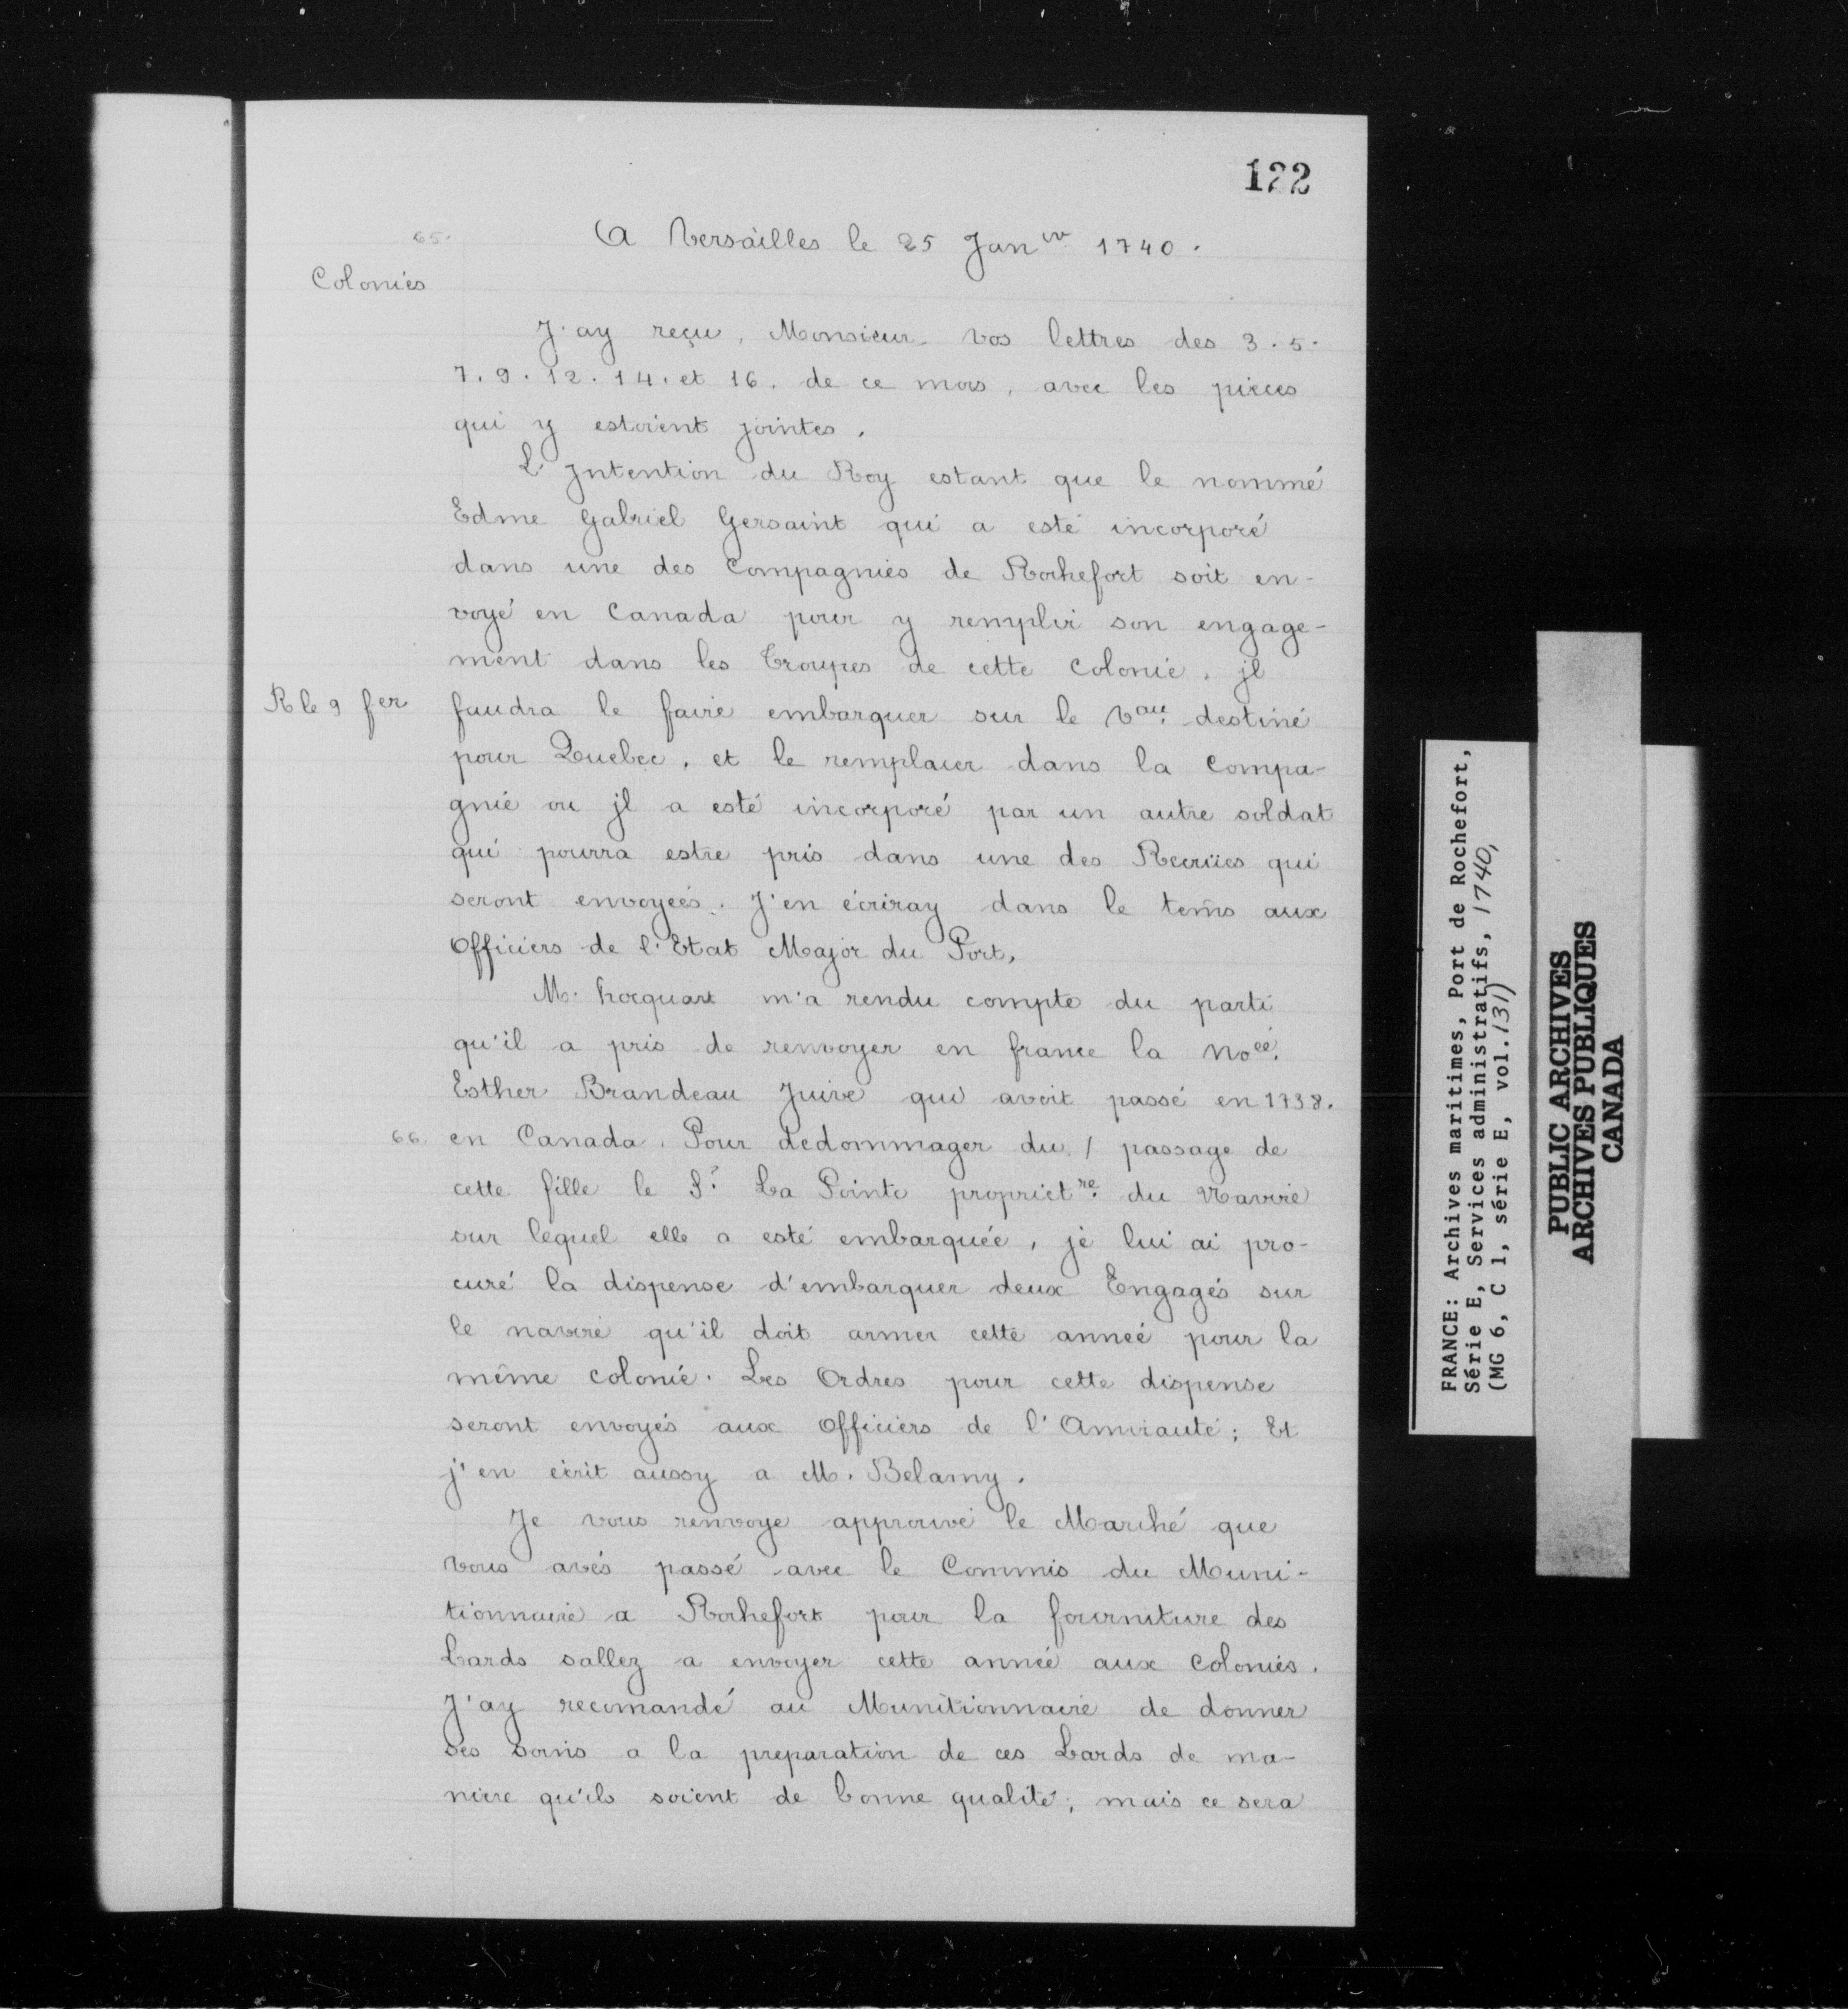 122
65.
A Versailles le 25 Jan er 1740.
Colonies
J'ay reçu, Monsieur vos lettres des 3. 5.
7. 9. 12. 14. et 16. de ce mois, avec les pieces
qui y estoient jointes.
L'Intention du Roy estant que le nommé
Edme Gabriel Gersaint qui a esté incorporé
dans une des Compagnies de Rochefort soit en-
voyé en Canada pour y remplir son engage-
ment dans les Troupes de cette colonie, jl
R le 9 fer
faudra le faire embarquer sur le Vau. destiné
pour Quebec, et le remplacer dans la Compa-
gnie ou jl a esté incorporé par un autre soldat
qui pourra estre pris dans une des Recrües qui
seront envoyées. J'en écriray dans le tems aux
Officiers de l'Etat Major du Port,
M. hocquart m'a rendu compte du parti
qu'il a pris de renvoyer en france la Nocé.
Esther Brandeau Juive qui avoit passé en 1738.
66.
en Canada. Pour dedommager du / passage de
cette fille le Sr. La Pointe propriet re. du Navire
sur lequel elle a esté embarquée, je lui ai pro-
curé la dispense d'embarquer deux Engagés sur
le navire qu'il doit armer cette année pour la
même colonie. Les Ordres pour cette dispense
seront envoyés aux Officiers de l'Amirauté; Et
j'en écrit aussy a M. Belamy.
Je vous renvoye approuvé le Marché que
vous avés passé avec le Commis du Muni-
tionnaire a Rochefort pour la fourniture des
Lards sallez a envoyer cette année aux colonies.
J'ay recomandé au Munitionnaire de donner
ses soins a la preparation de ces Lards de ma-
niere qu'ils soient de bonne qualité; mais ce sera
FRANCE: Archives maritimes, Port de Rochefort,
Série E, Services administratifs, 1740,
(MG 6, C 1, série E, vol. 131)
PUBLIC ARCHIVES
ARCHIVES PUBLIQUES
CANADA